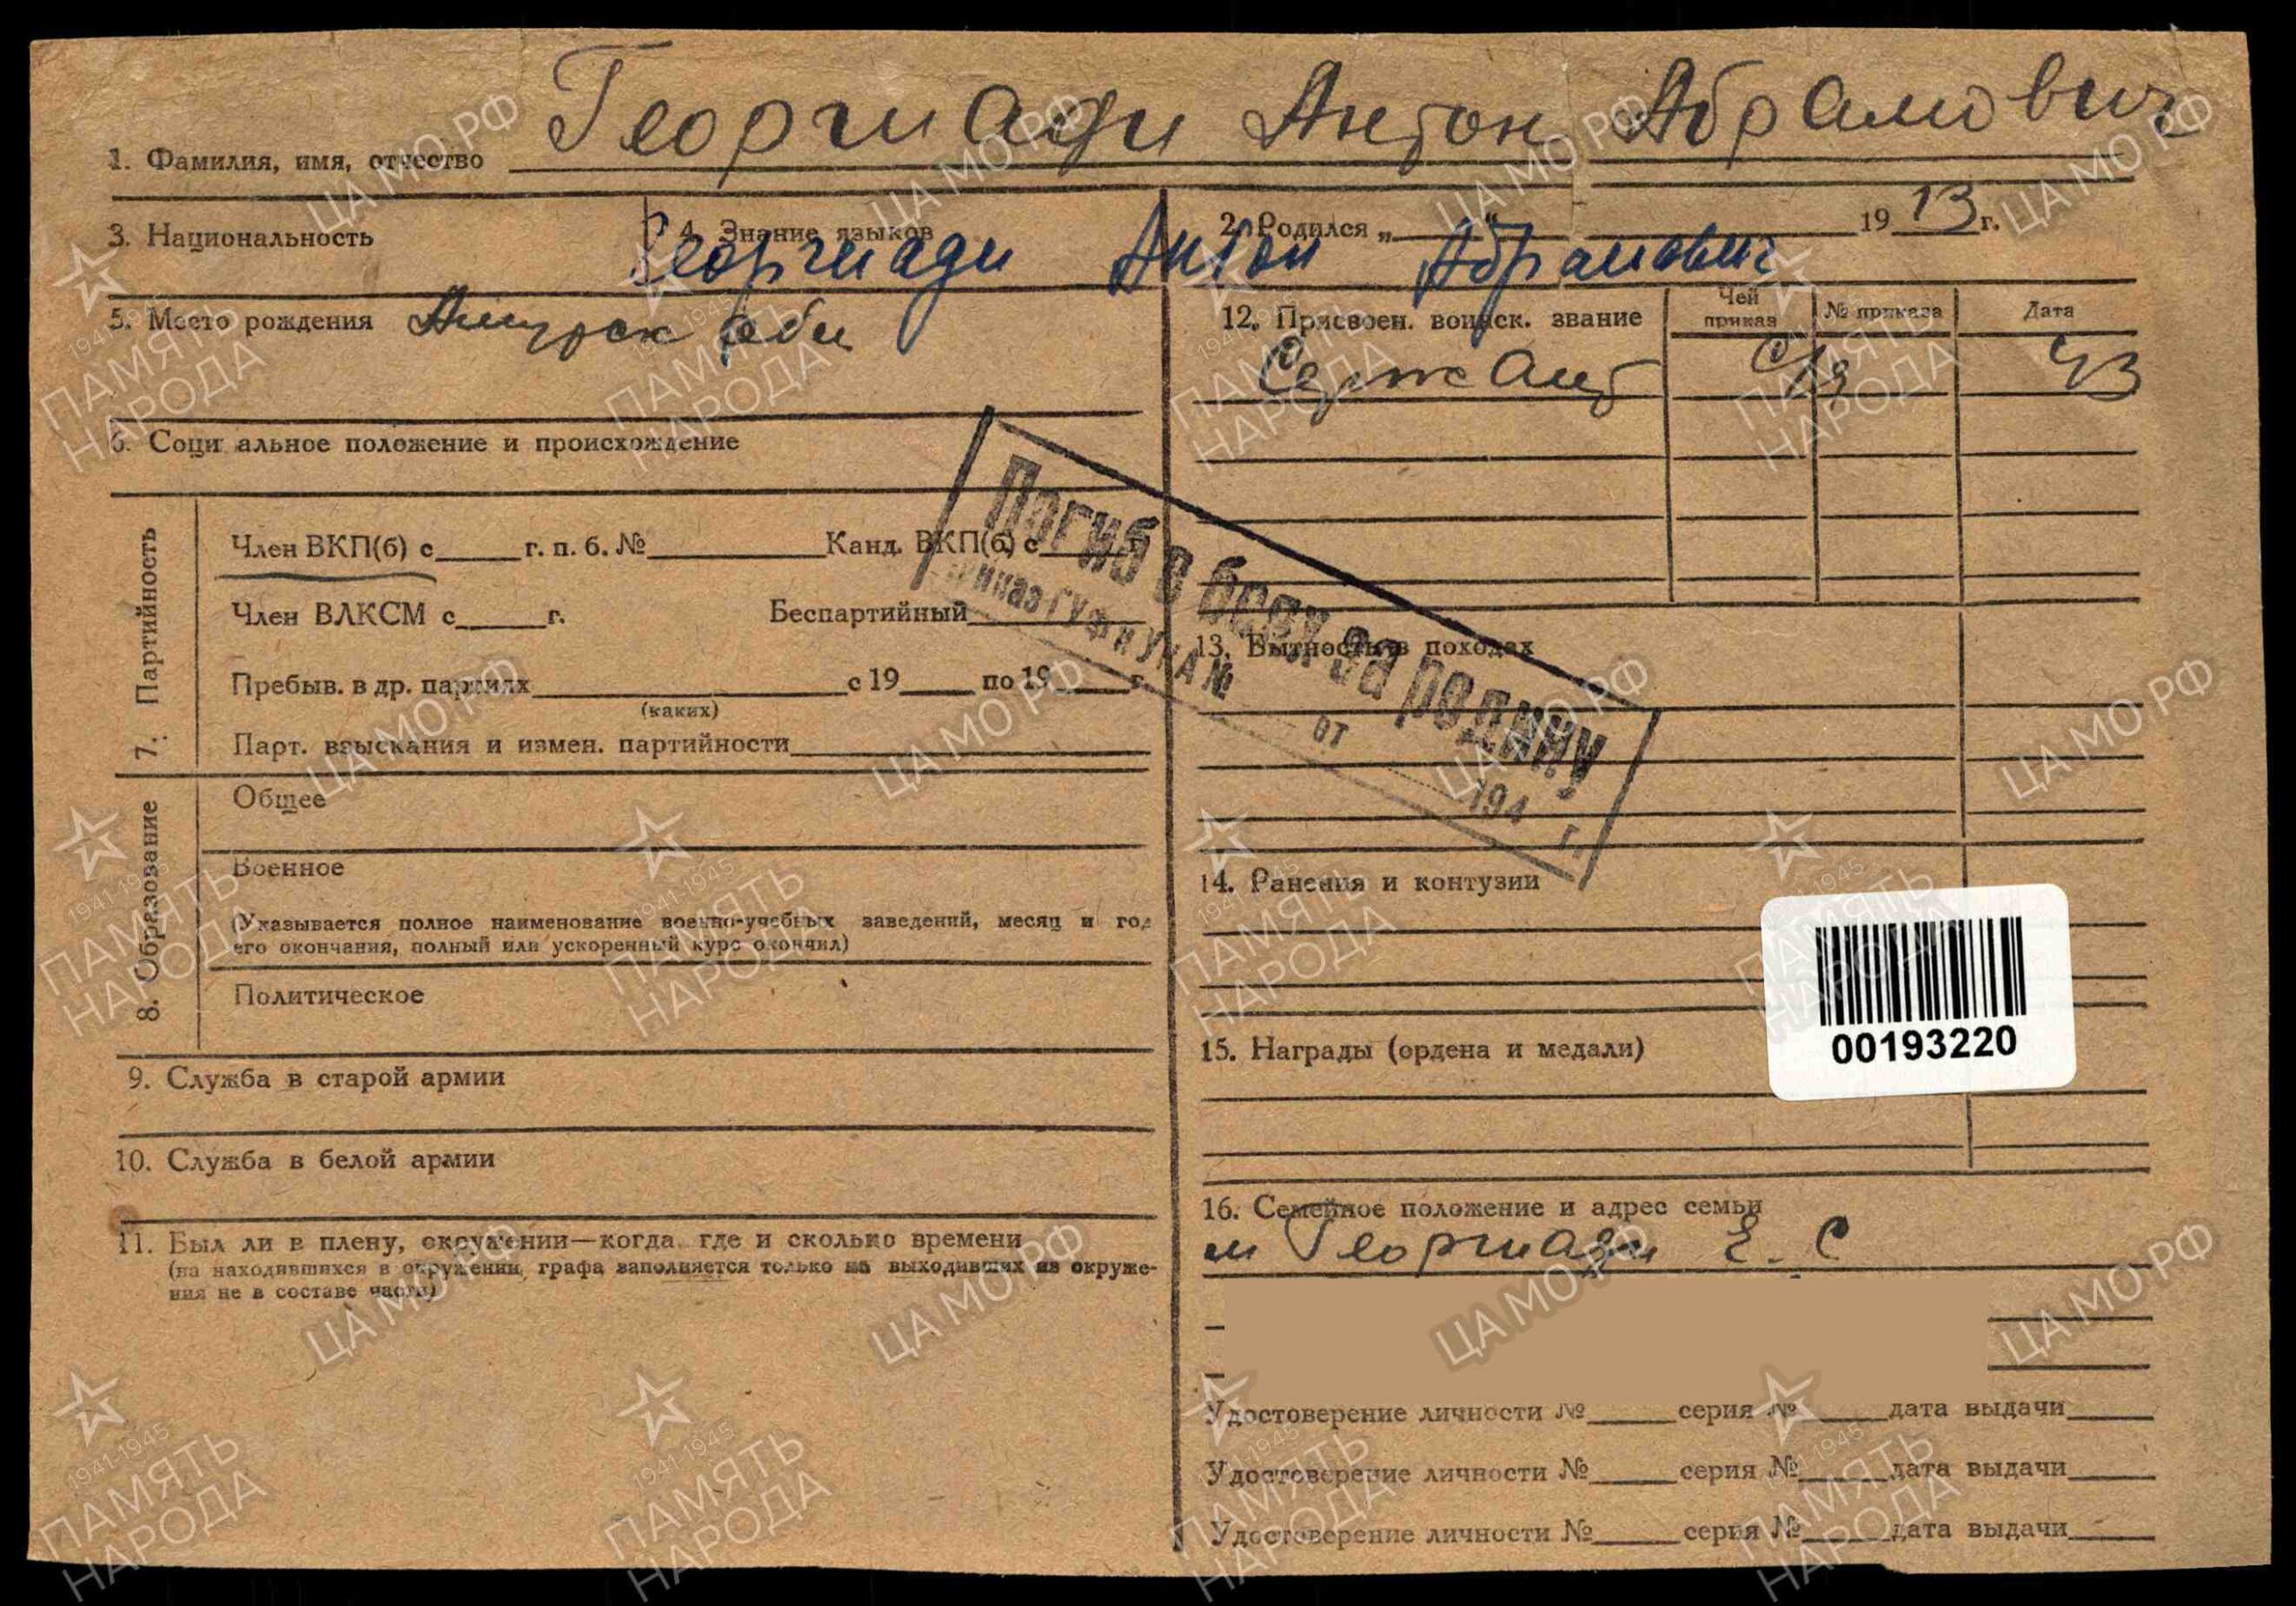 Георгиади Антон Абрамович
1. Фамилия, имя, отчество
3. Национальность
4. Знание языков
2. Родился „ “ 1913 г.
Георгиади Антон Абрамович
5. Место рождения Амурск обл
6. Социальное положение и происхождение
7. Партийность
Член ВКП(б) с г. п. б. № Канд. ВКП(б) с г.
Член ВЛКСМ с г. Беспартийный
Пребыв. в др. партиях с 19 по 19 г.
(каких)
Парт. взыскания и измен. партийности
8. Образование
Общее
Военное
(Указывается полное наименование военно-учебных заведений, месяц и год
его окончания, полный или ускоренный курс окончил)
Политическое
9. Служба в старой армии
10. Служба в белой армии
11. Был ли в плену, окружении—когда, где и сколько времени
(на находившихся в окружении, графа заполняется только на выходивших из окруже-
ния не в составе части)
12. Присвоен. воинск. звание
Чей приказ
№ приказа
Дата
Сержант 43
Погиб в бою за родину
приказ ГУФ и УКА №
от 194 г.
13. Бытность в походах
14. Ранения и контузии
00193220
15. Награды (ордена и медали)
16. Семейное положение и адрес семьи
м Георгиади Е. С
Удостоверение личности № серия № дата выдачи
Удостоверение личности № серия № дата выдачи
Удостоверение личности № серия № дата выдачи
ЦА МО РФ
1941-1945
ПАМЯТЬ
НАРОДА